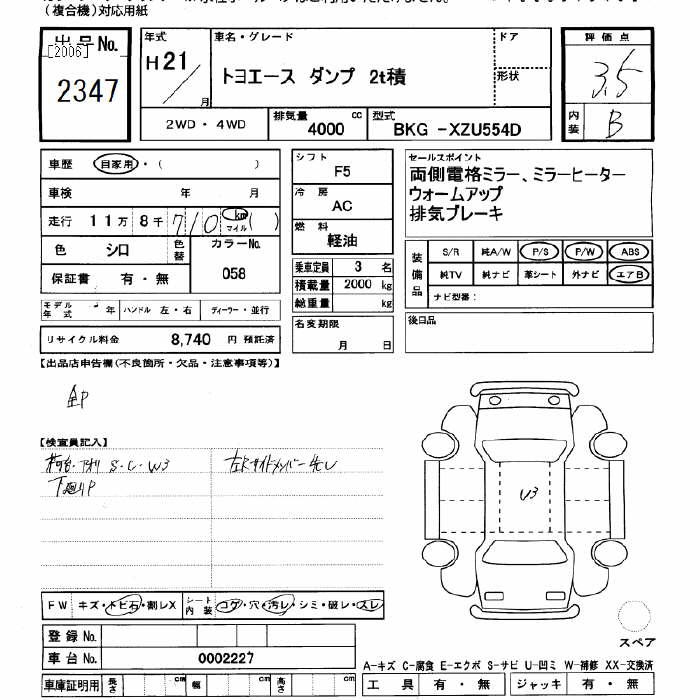 (複合機)対応用紙
出品No. 年式 車名・グレード ドア 評価点
[2006] H21 トヨエース ダンプ 2t積 3.5
2347 月 形状
2WD・4WD 排気量 4000 cc 型式 BKG -XZU554D 内装 B
車歴 自家用・( )
車検 年 月
走行 11万 8千 710 km マイル ( )
色 シロ 色替 カラーNo. 058
保証書 有・無
モデル年式 年 ハンドル 左・右 ディーラー・並行
リサイクル料金 8,740 円 預託済
シフト F5
冷房 AC
燃料 軽油
乗車定員 3 名
積載量 2000 kg
総重量 kg
名変期限 月 日
セールスポイント
両側電格ミラー、ミラーヒーター
ウォームアップ
排気ブレーキ
装備品 S/R 純A/W P/S P/W ABS
純TV 純ナビ 革シート 外ナビ エアB
ナビ型番:
後日品
【出品店申告欄(不良箇所・欠品・注意事項等)】
【検査員記入】
S・C・W3
下廻りP
U3
FW キズ・トビ石・割レX シート内装 コゲ・穴・汚レ・シミ・破レ・スレ
登録No.
車台No. 0002227
スペア
A-キズ C-腐食 E-エクボ S-サビ U-凹ミ W-補修 XX-交換済
車庫証明用 長さ cm 幅 cm 高さ cm 工具 有・無 ジャッキ 有・無